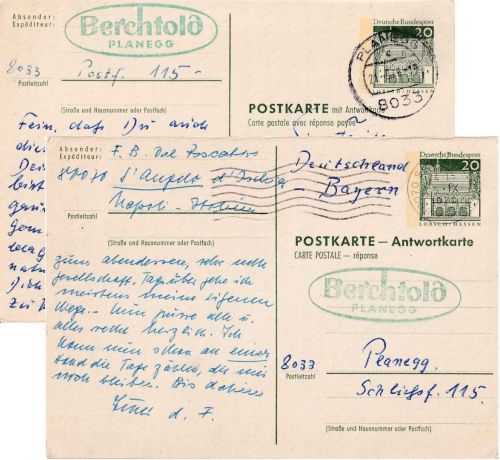 Absender:
Expéditeur:
Berchtold
PLANEGG
8033
Postf. 115-
Postleitzahl
(Straße und Hausnummer oder Postfach)
Deutsche Bundespost
20
LORSCH/HESSEN
PLANEGG
8033
POSTKARTE mit Antwort
Carte postale avec réponse payée
Fein, daß Du auch
die
Absender:
Expéditeur:
F. B. Val
80070 S'Angelo d'Ischia
Napoli - Italien
Postleitzahl
(Straße und Hausnummer oder Postfach)
Deutschland
- Bayern
Deutsche Bundespost
20
LORSCH/HESSEN
POSTKARTE — Antwortkarte
CARTE POSTALE — réponse
Berchtold
PLANEGG
8033
Postleitzahl
Planegg.
Schließf. 115.
(Straße und Hausnummer oder Postfach)
zum abendessen, sehr nette
Gesellschaft. Tagsüber gehe ich
meistens meine eigenen
Wege. - Nun grüsse alle u.
alles recht herzlich. Ich
kann nun schon an einer
Hand die Tage zählen, die mir
noch bleiben. Bis dahin
d. F.